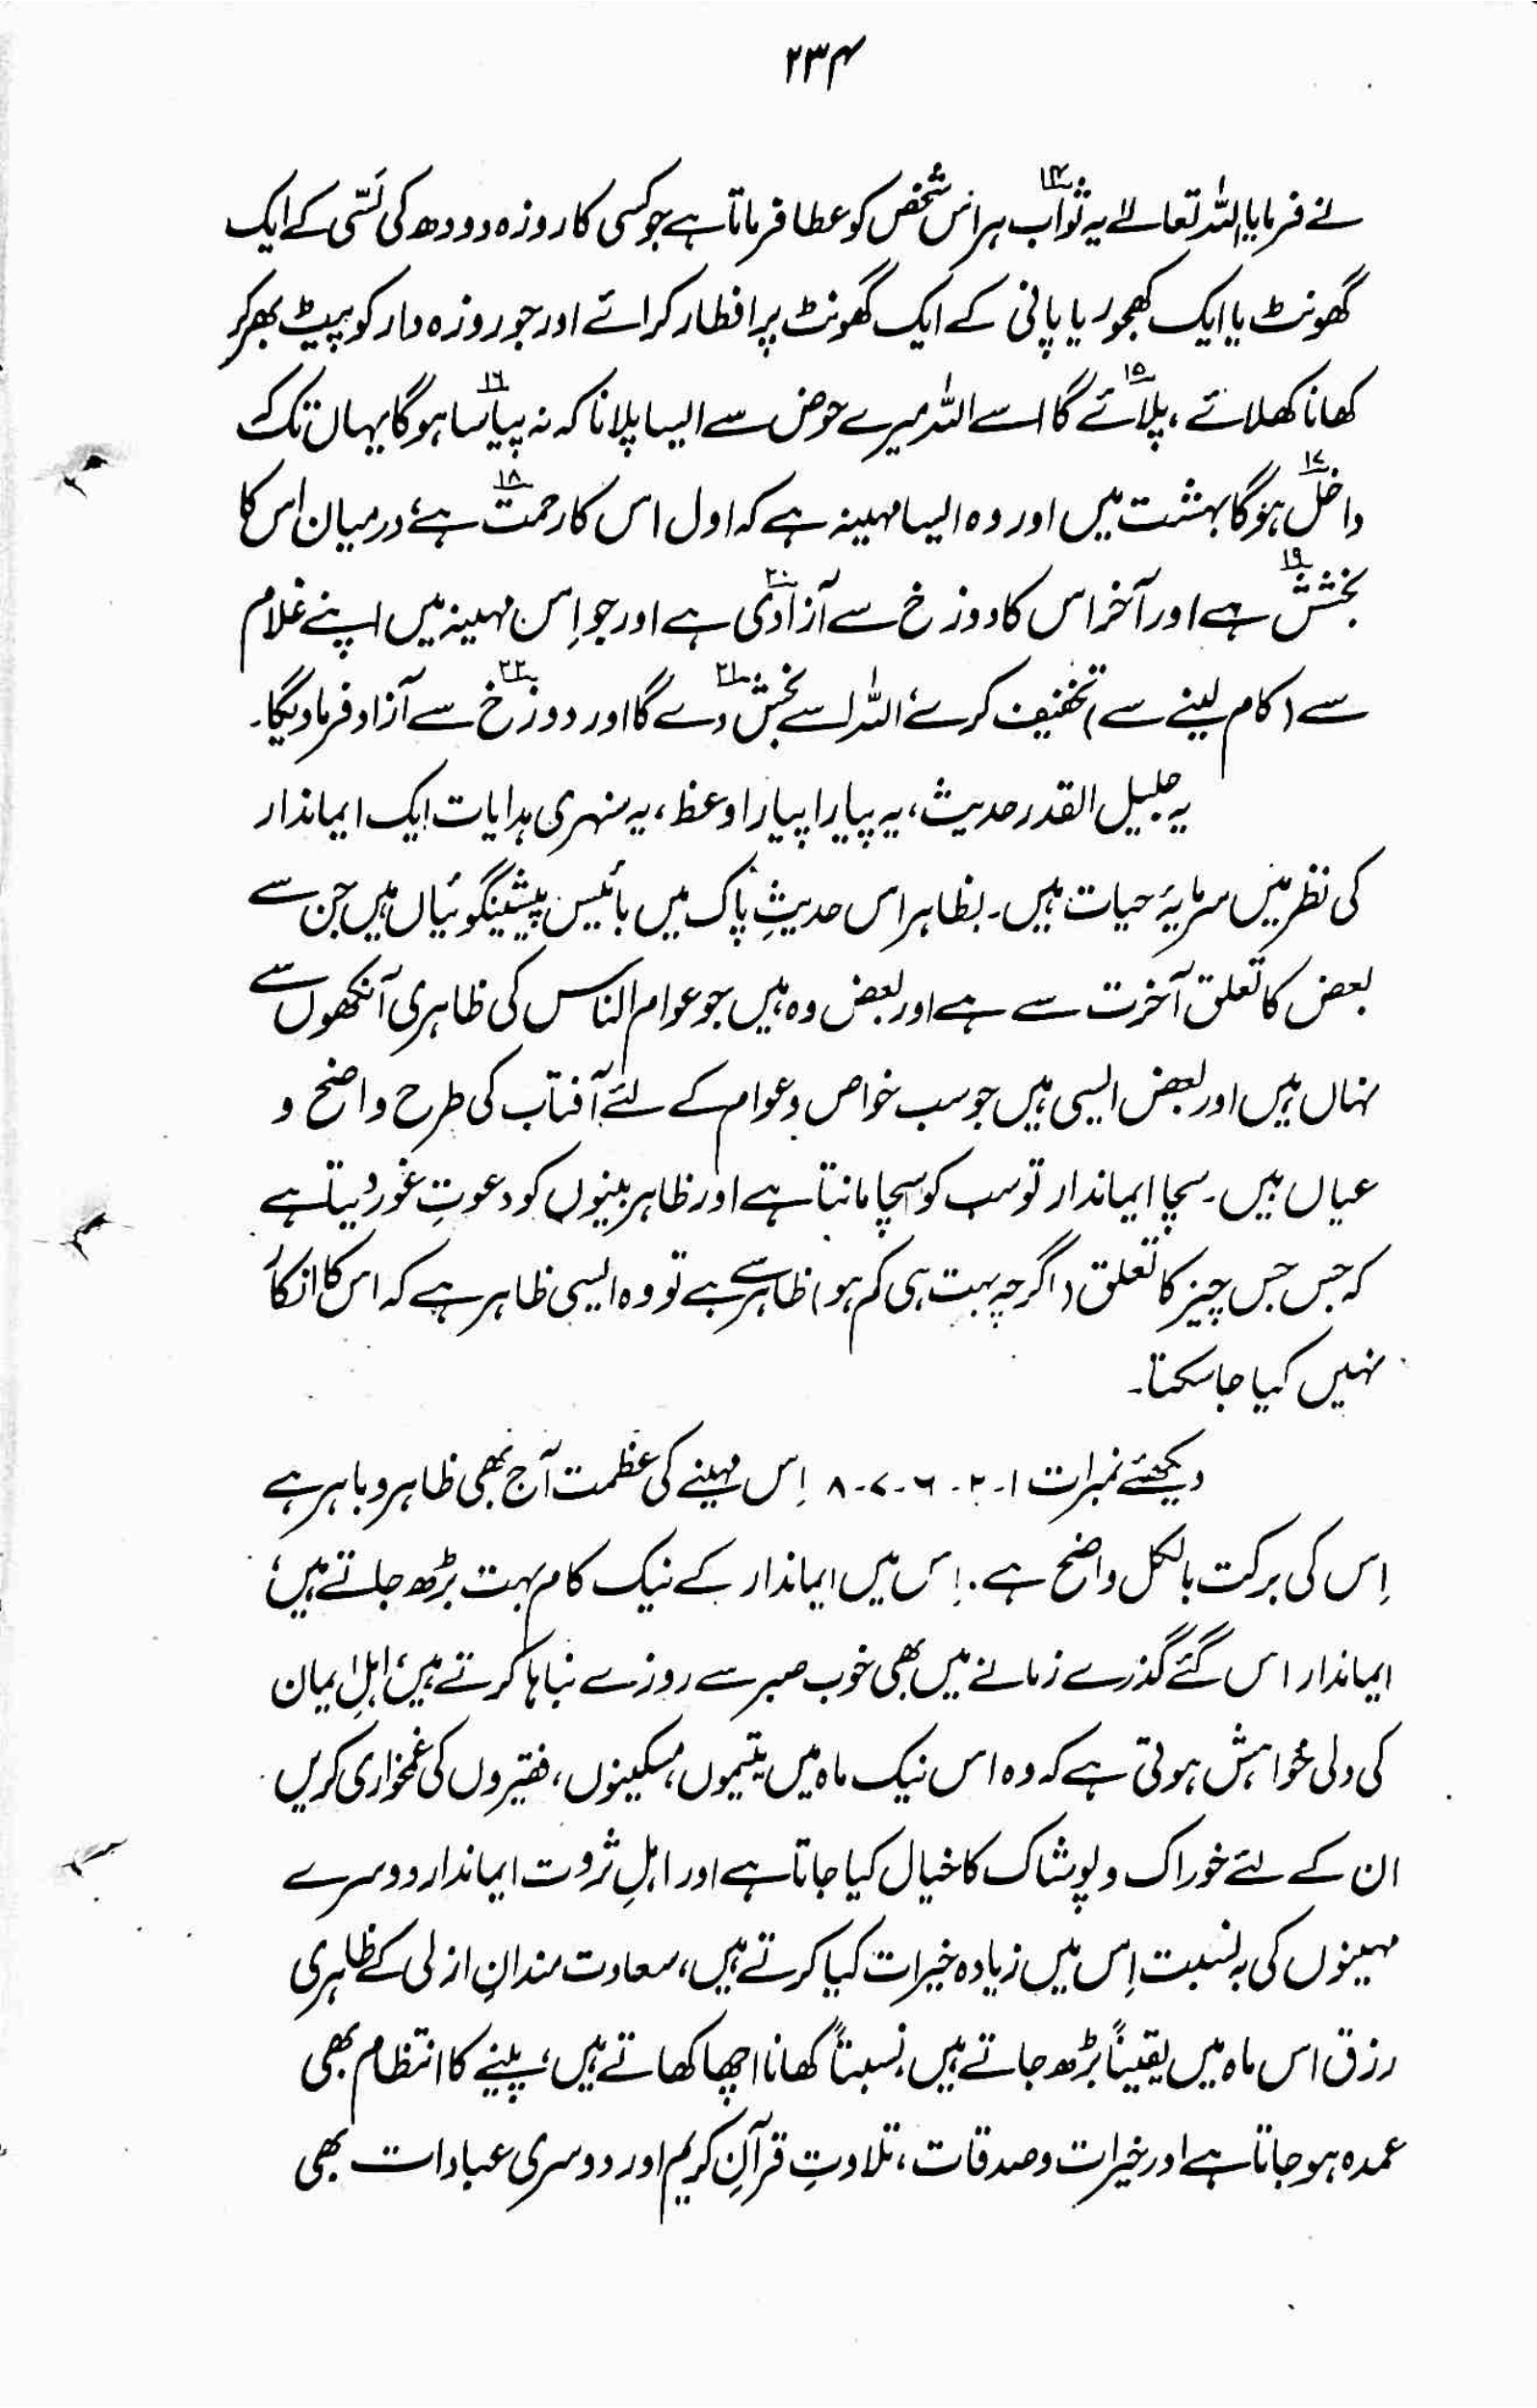 ۲۳۴
نے فرمایا اللہ تعالےٰ یہ ثواب۱۴ ہر اس شخص کو عطا فرماتا ہے جو کسی کا روزہ دودھ کی لَسّی کے ایک
گھونٹ یا ایک کھجور یا پانی کے ایک گھونٹ پر افطار کرائے اور جو روزہ دار کو پیٹ بھر کر
کھانا کھلائے، پلائے۱۵ گا اسے اللہ میرے حوض سے ایسا پلانا کہ نہ پیاسا۱۶ ہوگا یہاں تک کہ
داخل۱۷ ہوگا بہشت میں اور وہ ایسا مہینہ ہے کہ اول اس کا رحمت۱۸ ہے، درمیان اس کا
بخشش۱۹ ہے اور آخر اس کا دوزخ سے آزادی۲۰ ہے اور جو اِس مہینہ میں اپنے غلام
سے (کام لینے سے) تخفیف کرے، اللہ اسے بخش۲۱ دے گا اور دوزخ۲۲ سے آزاد فرما دیگا۔
یہ جلیل القدر حدیث، یہ پیارا پیارا وعظ، یہ سنہری ہدایات ایک ایماندار
کی نظر میں سرمایۂ حیات ہیں۔ بظاہر اس حدیثِ پاک میں بائیس پیشینگوئیاں ہیں جن سے
بعض کا تعلق آخرت سے ہے اور بعض وہ ہیں جو عوام الناس کی ظاہری آنکھوں سے
نہاں ہیں اور بعض ایسی ہیں جو سب خواص و عوام کے لئے آفتاب کی طرح واضح و
عیاں ہیں۔ سچا ایماندار تو سب کو سچا مانتا ہے اور ظاہر بینوں کو دعوتِ غور دیتا ہے
کہ جس جس چیز کا تعلق (اگرچہ بہت ہی کم ہو) ظاہر سے ہے تو وہ ایسی ظاہر ہے کہ اس کا انکار
نہیں کیا جاسکتا۔
دیکھئے نمبرات ۱-۲-۶-۷-۸ اِس مہینے کی عظمت آج بھی ظاہر و باہر ہے
اِس کی برکت بالکل واضح ہے۔ اِس میں ایماندار کے نیک کام بہت بڑھ جاتے ہیں،
ایماندار اس گئے گذرے زمانے میں بھی خوب صبر سے روزے نباہا کرتے ہیں، اہلِ ایمان
کی دلی خواہش ہوتی ہے کہ وہ اس نیک ماہ میں یتیموں، مسکینوں، فقیروں کی غمخواری کریں
ان کے لئے خوراک و پوشاک کا خیال کیا جاتا ہے اور اہلِ ثروت ایماندار دوسرے
مہینوں کی بہ نسبت اِس میں زیادہ خیرات کیا کرتے ہیں، سعادت مندانِ ازلی کے ظاہری
رزق اس ماہ میں یقیناً بڑھ جاتے ہیں نسبتاً کھانا اچھا کھاتے ہیں، پینے کا انتظام بھی
عمدہ ہو جاتا ہے اور خیرات و صدقات، تلاوتِ قرآنِ کریم اور دوسری عبادات بھی